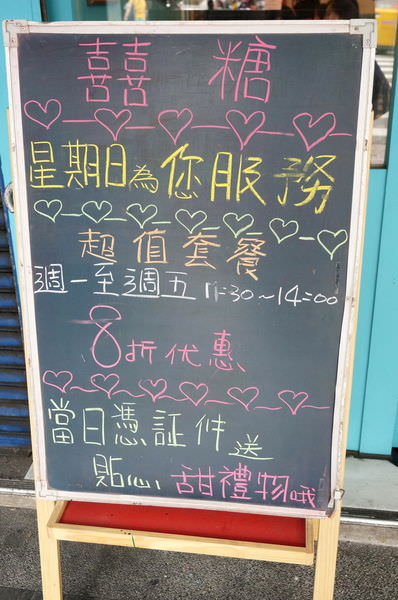 囍 糖
星期日為您服務
超值套餐
週一至週五 11:30~14:00
8折优惠
當日憑証件送
貼心甜禮物哦